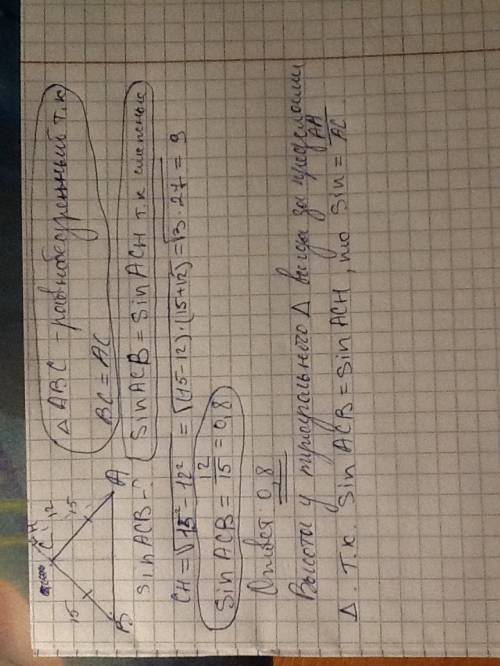 C H
12
15
15
B
A
△ ABC - равнобедренный т.к
BC = AC
sin ACB - ?
Sin ACB = Sin ACH т.к смежные
CH = √15² - 12² = √(15-12)·(15+12) = √3·27 = 9
Sin ACB = 12/15 = 0,8
Ответ: 0,8
Высоты у тупоугольного △ за пределами
△. т.к. Sin ACB = Sin ACH, то Sin = AH/AC.